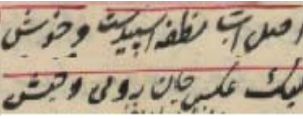 اصل آب نطفه اسپیدست و خوش
لیک عکس جان رومی و حبش